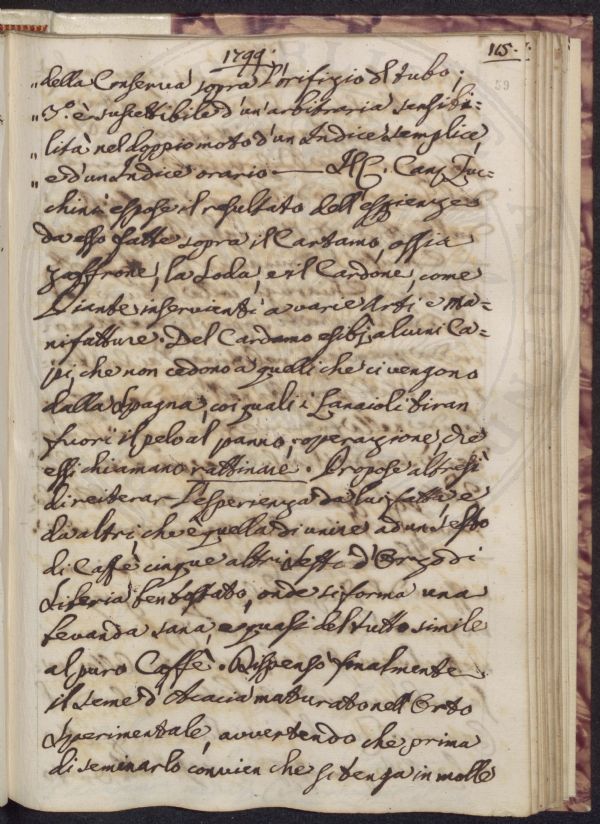 1799.
115.
59
" della Conserva sopra l'orifizio del tubo;
" 3.° è suscettibile d'un'arbitraria sensibi-
" lità nel doppio moto d'un Indice semplice,
" e d'un Indice orario — Il C. Can.
chini espose il resultato dell'esperienze
da esso fatte sopra il Cartamo, ossia
zaffrone, la Soda, e il Cardone, come
Piante inservienti a varie Arti, e Ma-
nifatture. Del Cardamo esibj alcuni Ca-
pi, che non cedono a quelli che ci vengono
dalla Spagna, coi quali i Lanaioli tiran
fuori il pelo al panno, operazione che
essi chiamano rattinare. Propose altresì
di reiterar l'esperienza da lui fatta e
da altri, che è quella di unire ad un Sesto
di Caffè cinque altri Sesti d'Orzo di
Siberia ben tostato, onde si forma una
bevanda sana, e quasi del tutto simile
al puro Caffè. Dispensò finalmente
il seme d'Acacia maturato nell'Orto
Sperimentale, avvertendo che prima
di seminarlo convien che si tenga in molle